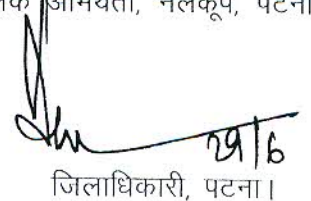 अभियंता, नलकूप, पटना
29/6
जिलाधिकारी, पटना।